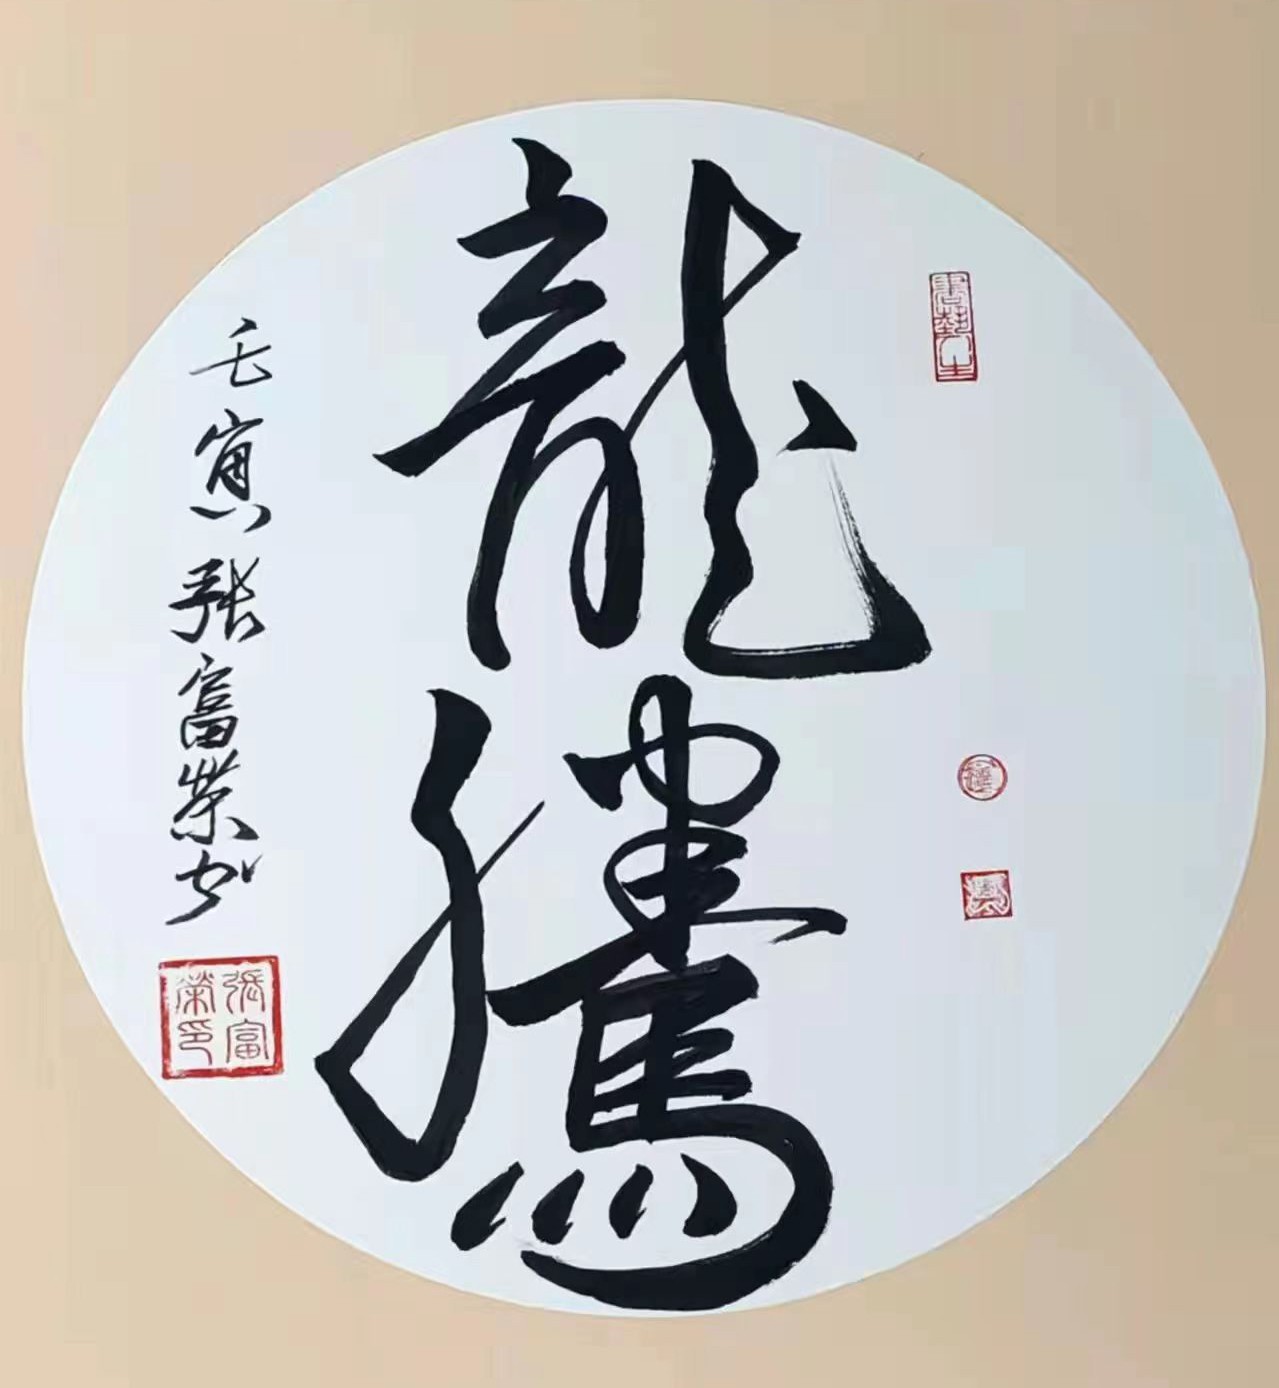 龍騰
壬寅張富榮书
張富
榮印